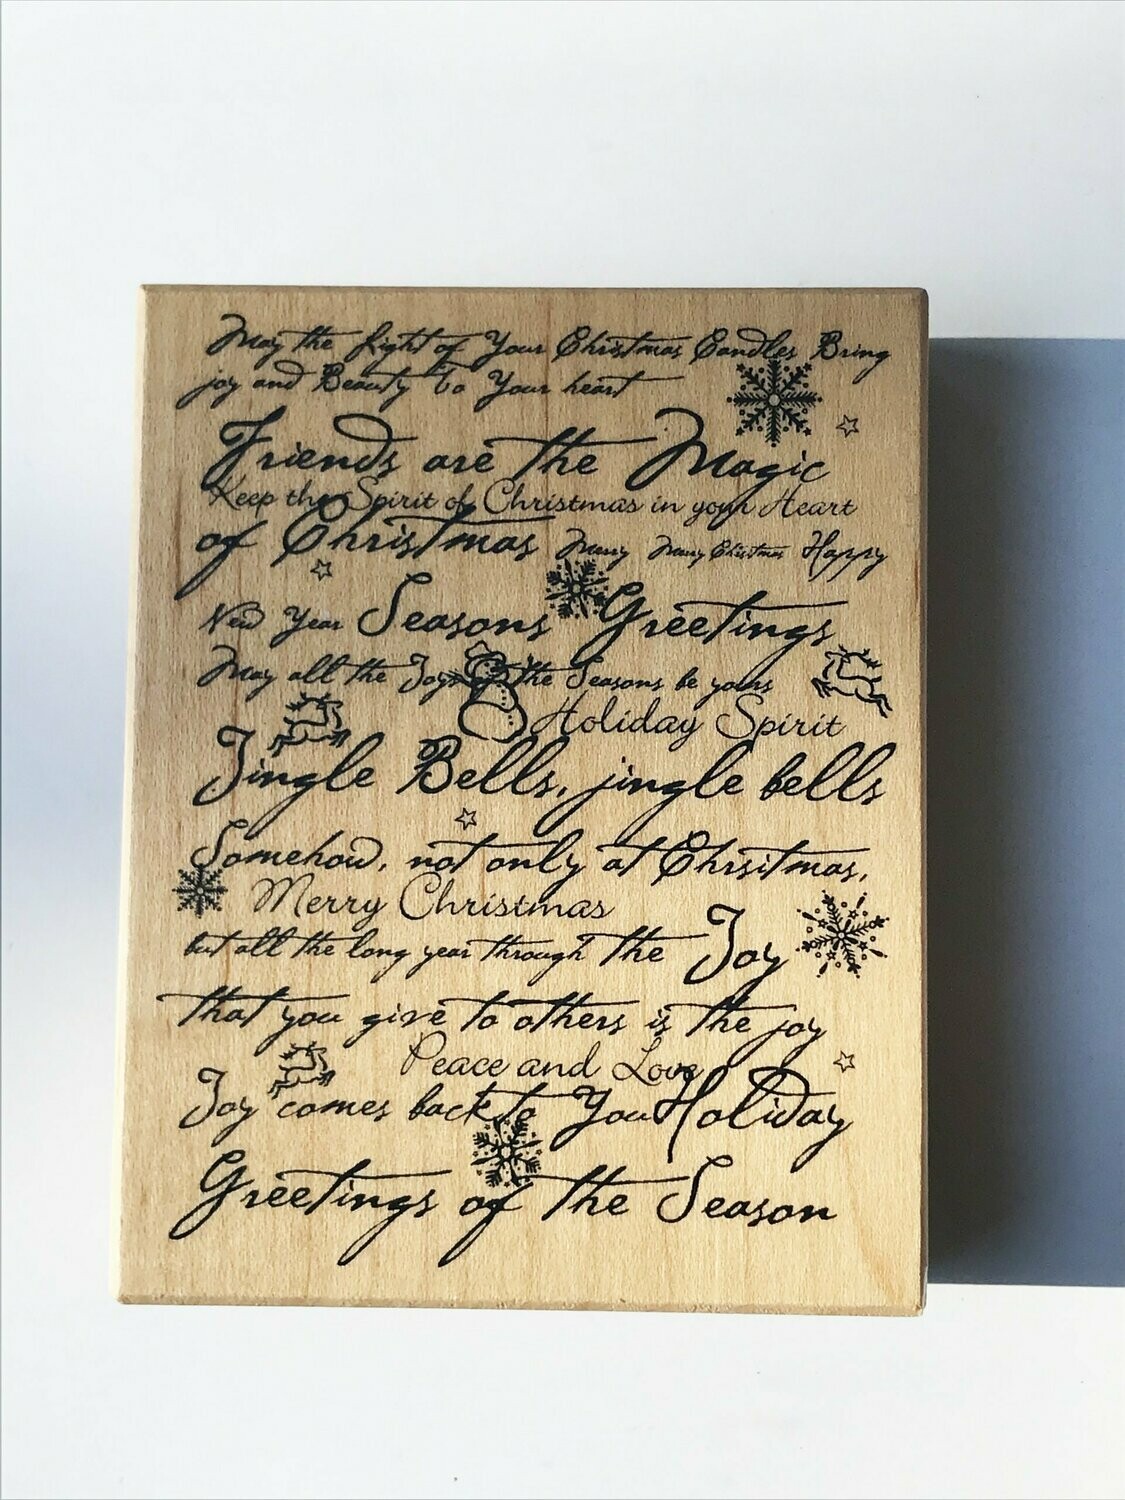 May the Light of Your Christmas Candles Bring
joy and Beauty To Your heart
Friends are the Magic
Keep the Spirit of Christmas in your Heart
of Christmas Merry Merry Christmas Happy
New Year Seasons Greetings
May all the Joys of the Seasons be yours
Holiday Spirit
Jingle Bells, jingle bells
Somehow, not only at Chrsitmas,
Merry Christmas
but all the long year through the Joy
that you give to others is the joy
Peace and Love
Joy comes back to You Holiday
Greetings of the Season